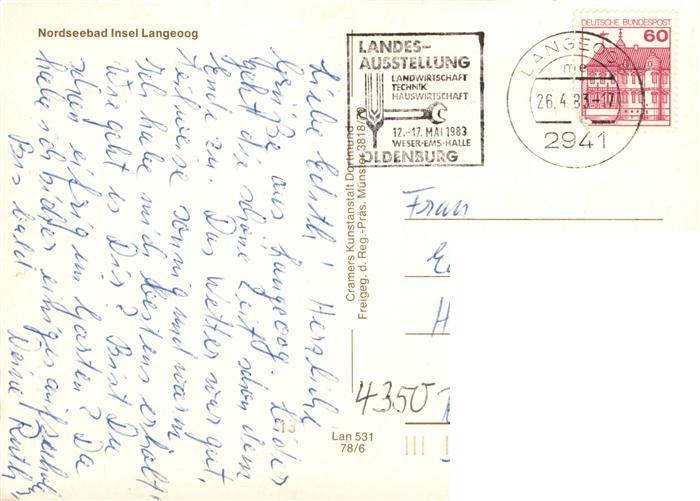 Nordseebad Insel Langeoog
Herzliche
Grüße aus Langeoog. Leider
geht die schöne Zeit schon dem
Ende zu. Das Wetter war gut,
teilweise sonnig und warm.
Ich habe mich bestens erholt.
Wie geht es Dir? Bist Du
schon eifrig im Garten? Da
habe ich einiges aufzuholen
Bis bald Deine Ruth
Cramers Kunstanstalt Dortmund
Freigeg. d. Reg.-Präs. Münster 3818/79
Lan 531
78/6
13
LANDES-
AUSSTELLUNG
LANDWIRTSCHAFT
TECHNIK
HAUSWIRTSCHAFT
12.-17. MAI 1983
WESER-EMS-HALLE
OLDENBURG
LANGEOOG
26.4.83-17
2941
DEUTSCHE BUNDESPOST
60
Frau
H
4350